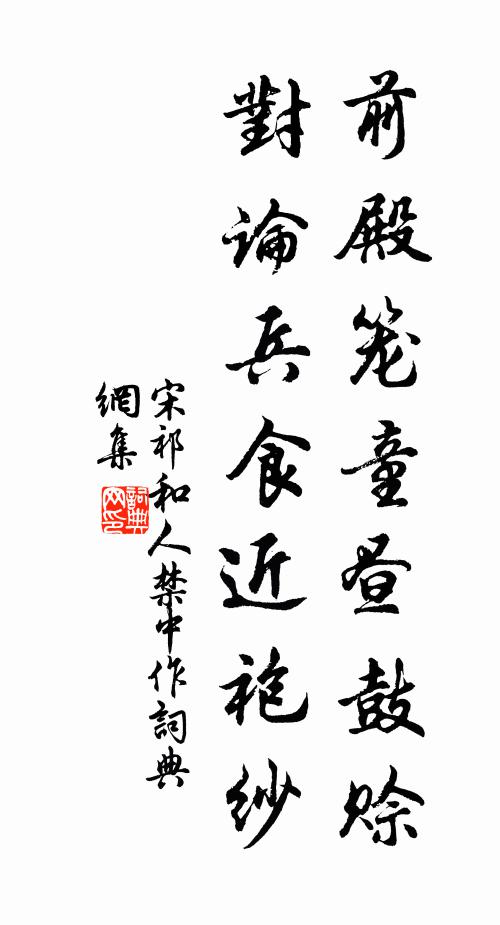 前殿笼童昼鼓赊
對論兵食近袍紗
宋祁和人禁中作詞典
網集
詞典網印